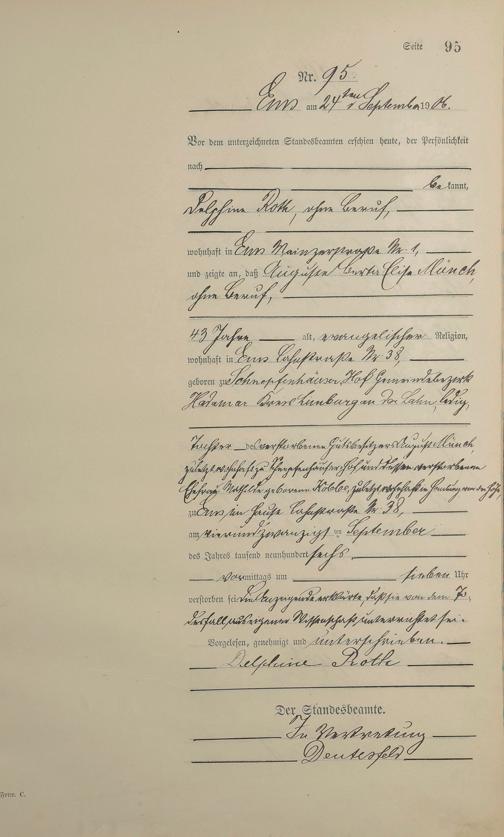 Seite 95
Nr. 95.
Ems am 24ten September 1906.
Vor dem unterzeichneten Standesbeamten erschien heute, der Persönlichkeit
nach
be kannt,
Delphine Roth, ohne Beruf,
wohnhaft in Ems Mainzerstraße Nr. 1,
und zeigte an, daß Auguste Berta Elise Münch,
ohne Beruf,
43 Jahre alt, evangelischer Religion,
wohnhaft in Ems Lahnstraße Nr 38,
geboren zu Hof Gemeindebezirk
Hadamar Kreis Limburg an der Lahn, ledig,
Tochter des verstorbenen Gutsbesitzers August Münch
zuletzt wohnhaft zu Hof und dessen verstorbenen
Ehefrau Mathilde geborenen zuletzt wohnhaft
zu Ems im Hause Lahnstraße Nr. 38,
am vierundzwanzigsten September
des Jahres tausend neunhundert sechs
vormittags um sieben Uhr
verstorben sei. Die Anzeigende erklärte, daß sie von dem
Sterbefall aus eigener Wissenschaft unterrichtet sei.
Vorgelesen, genehmigt und unterschrieben.
Delphine Roth
Der Standesbeamte.
In Vertretung
Form. C.